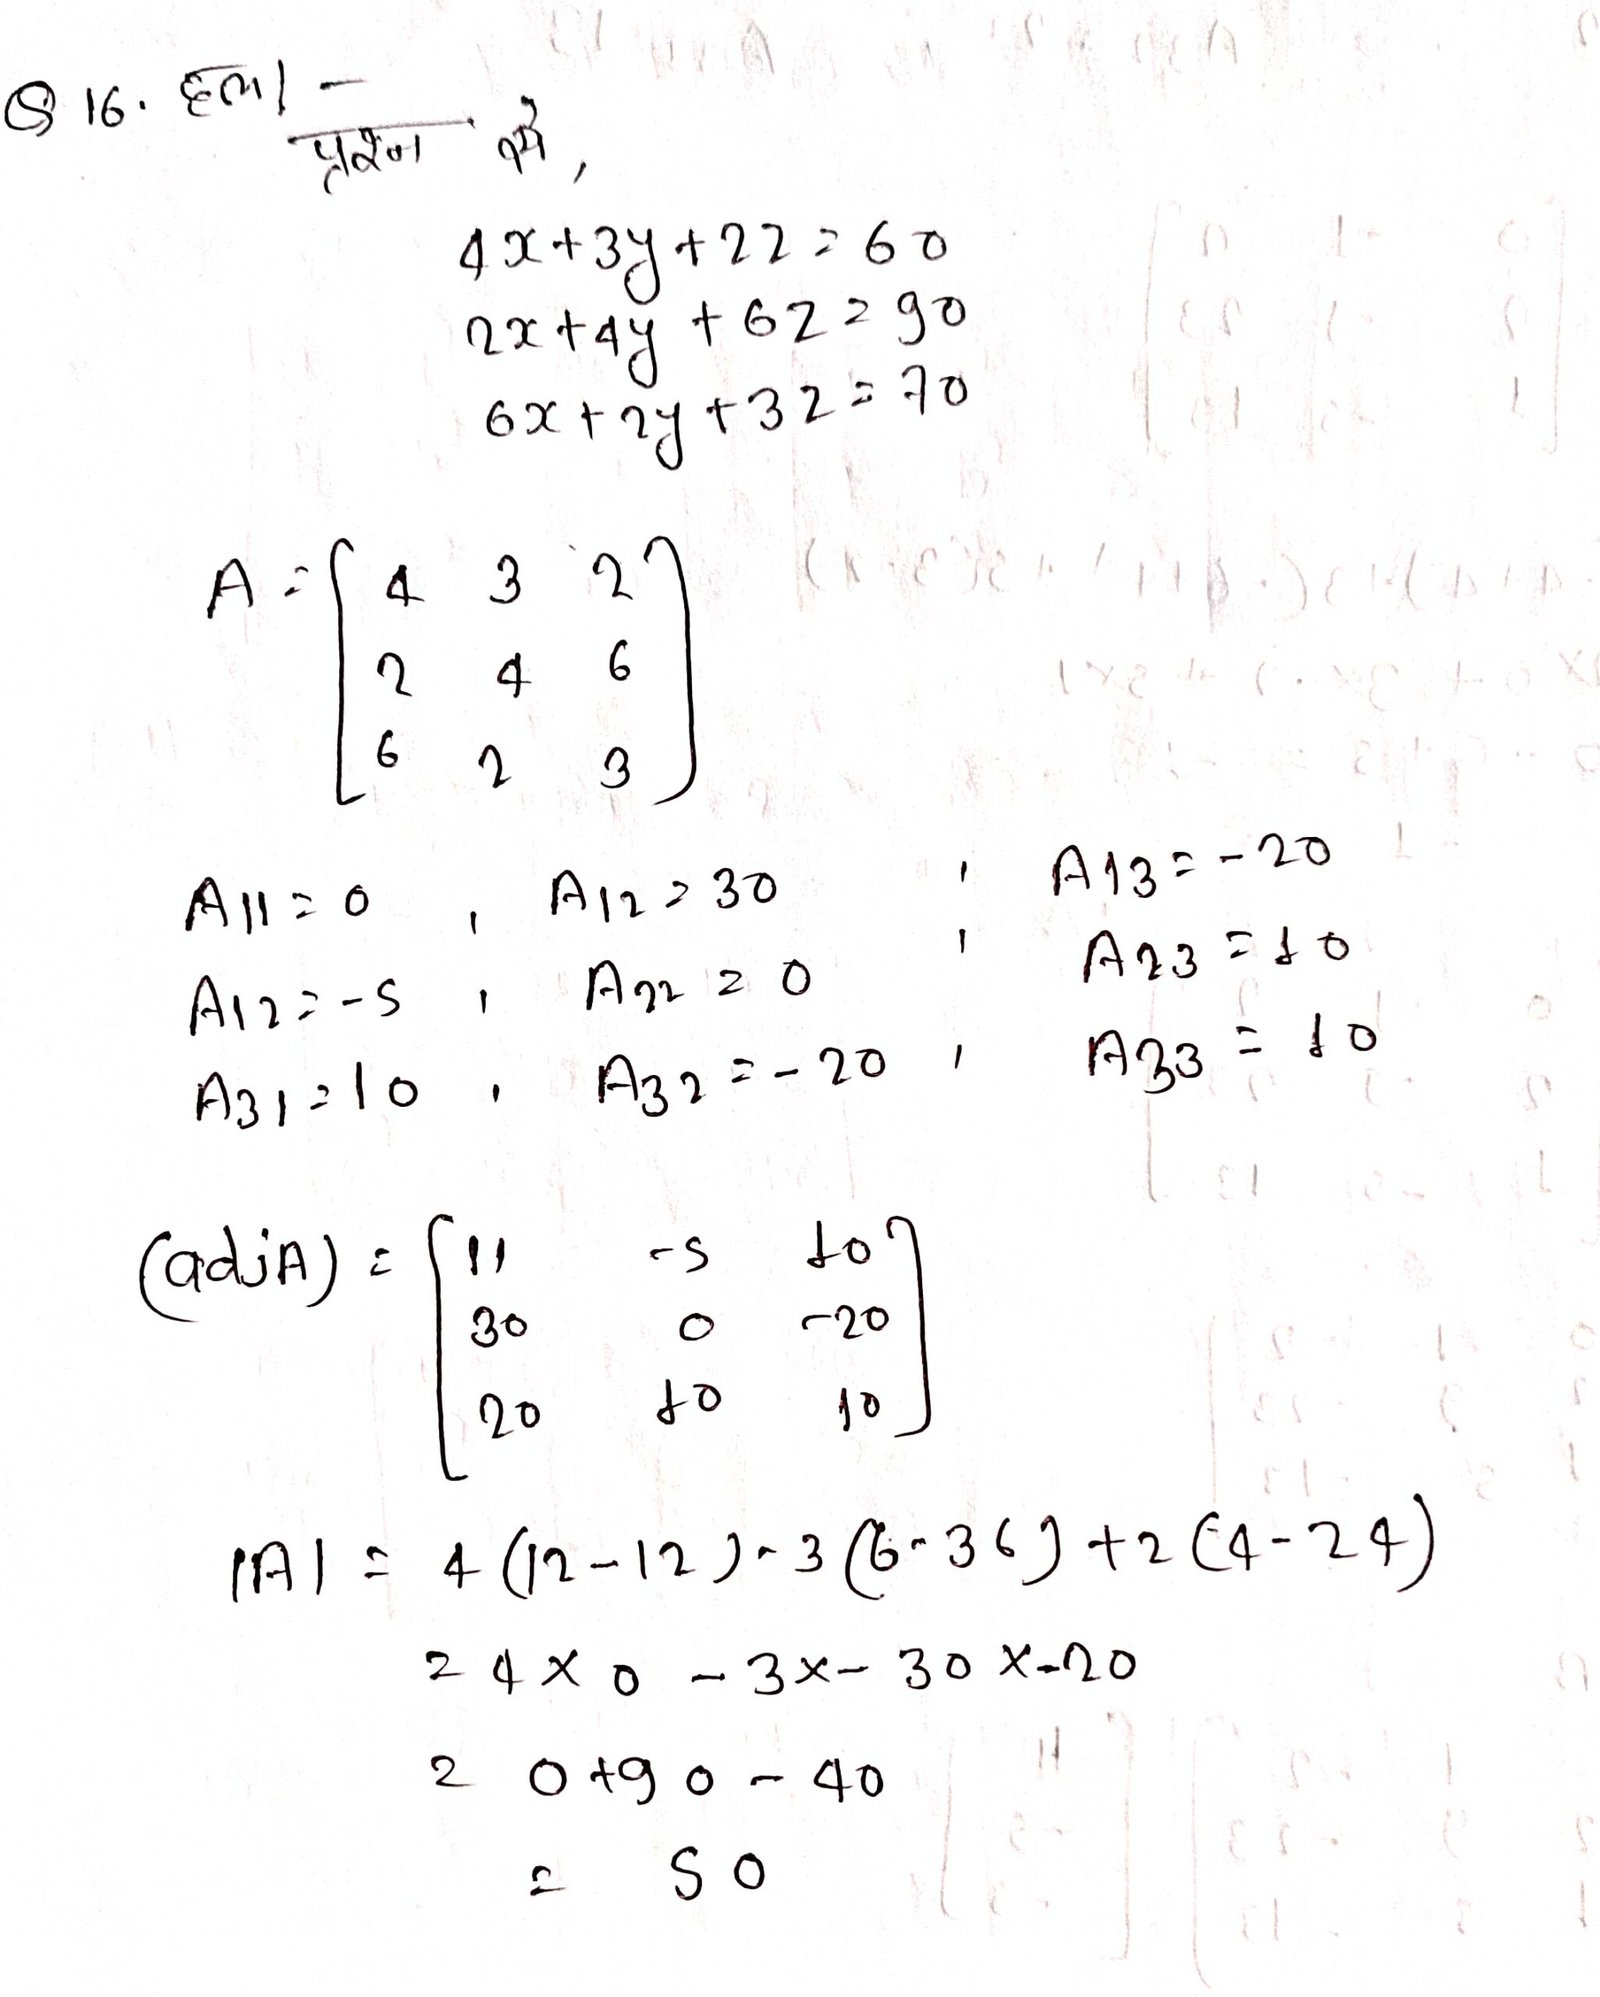 Q 16. हल। –
प्रश्न से,
4x+3y+2z=60
2x+4y+6z=90
6x+2y+3z=70
A=[4 3 2
2 4 6
6 2 3]
A11=0, A12=30, A13=-20
A12=-5, A22=0, A23=10
A31=10, A32=-20, A33=10
(adjA)=[11 -5 10
30 0 -20
20 10 10]
|A| = 4(12-12)-3(6-36)+2(4-24)
=4×0-3×-30×-20
= 0+90-40
= 50